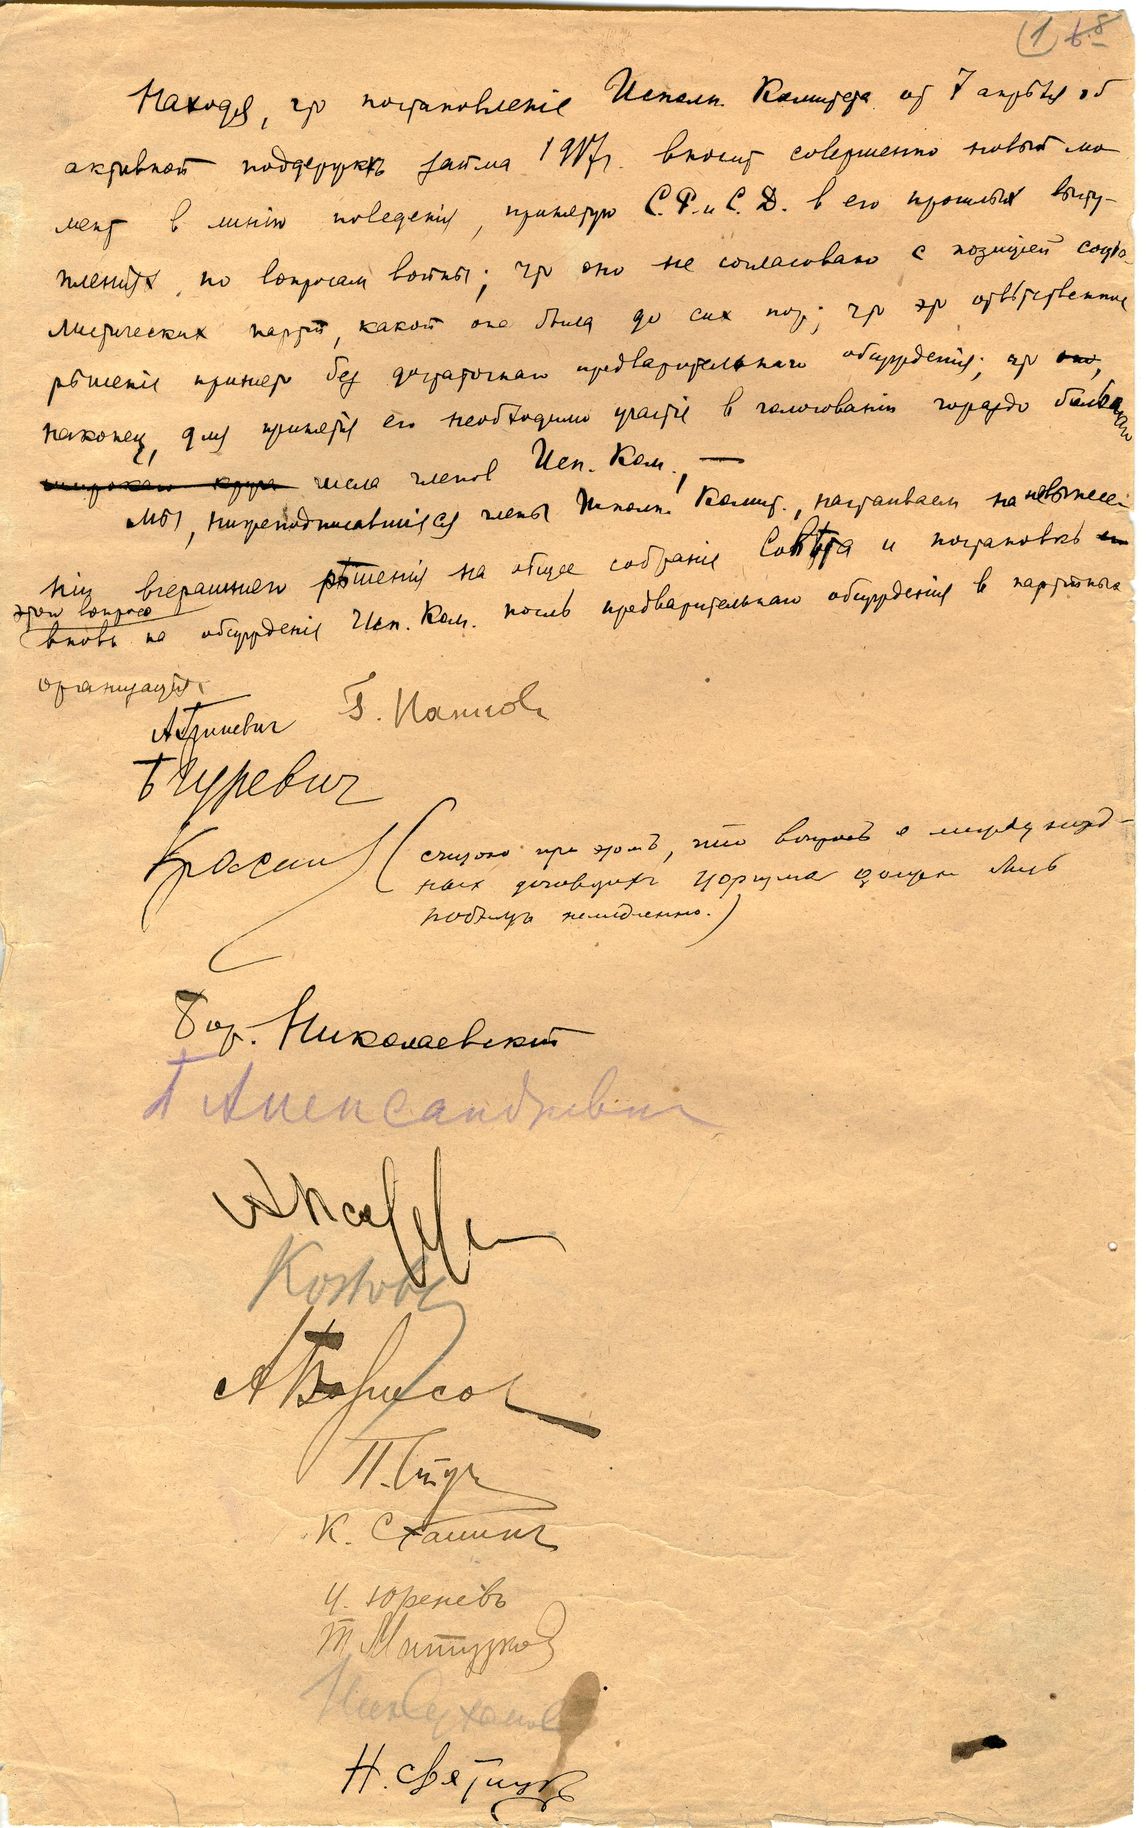 1 68
Находя, что постановленіе Исполн. Комитета от 7 апрѣля об
активной поддержкѣ займа 1917 г. вносит совершенно новый мо-
мент в линію поведенія, принятую С. Р. и С. Д. в его прошлых высту-
плениях по вопросам войны; что оно не согласовано с позицией социа-
листических партій, какой она была до сих пор; что это отвѣтственное
рѣшеніе принято без достаточнаго предварительнаго обсужденія; что оно,
наконец, для принятія его необходимо участіе в голосованіи гораздо большаго
широкаго круга числа членов Исп. Ком., —
мы, нижеподписавшіеся члены Исполн. Комит., настаиваем на невынесе-
ніи вчерашняго рѣшенія на общее собраніе Совѣта и постановкѣ
этого вопроса
вновь на обсужденіе Исп. Ком. послѣ предварительнаго обсужденія в партійных
организаціях.
А Гриневич
Гуревич
Красин (считаю при этом, что вопрос о междунард-
ных
немедленно.)
Бор. Николаевский
П Александрович
Козлов
А Борисов
П. Стучк
К. Сталин
И. Юренев
Ник Суханов
Н. Святицкій